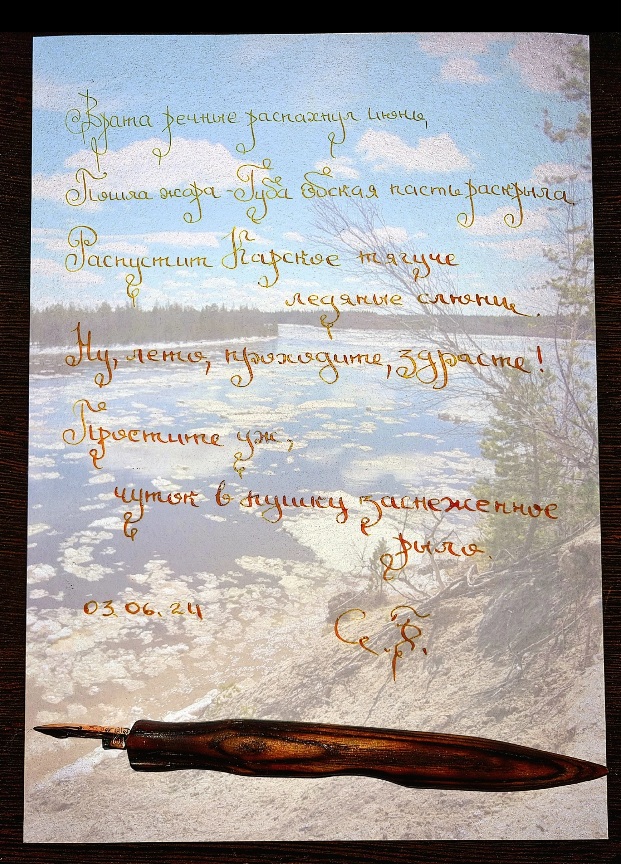 Врата речные распахнул июнь,
Пошла жара - Губа обская пасть раскрыла
Распустит Карское тягуче
ледяные слюни.
Ну, лето, проходите, здрасте!
Простите уж,
чуток в пушку заснеженное
рыло.
03.06.24
Се.В.